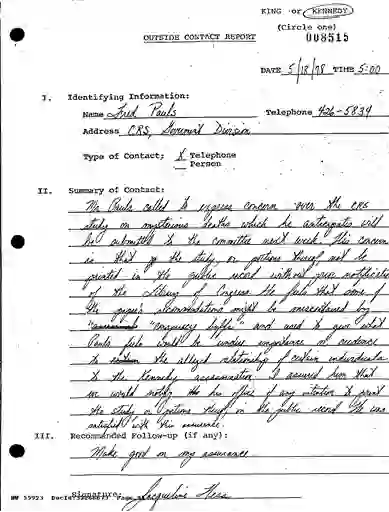 KING or KENNEDY
(Circle one)
008515
OUTSIDE CONTACT REPORT
DATE 5/18/78 TIME 5:00
I. Identifying Information:
Name Fred Pauls Telephone 426-5834
Address CRS, Goverment Division
Type of Contact: X Telephone
Person
II. Summary of Contact:
Mr. Pauls called to express concern over the CRS
study on mysterious deaths which he anticipates will
be submitted to the committee next week. His concern
is that the study, or portions thereof, not be
printed in the public record without prior notification
of the Library of Congress. He feels that some of
the paper's recommendations might be misconstrued by
"conspiracy buffs" and used to give what
Pauls feels would be undue importance or credence
to the alleged relationship of certain individuals
to the Kennedy assassination. I assured him that
we would notify his office of any intention to print
the study or portions thereof in the public record. He was
satisfied with this assurance.
III. Recommended Follow-up (if any):
Make good on my assurance
Signature: Jacqueline Hess